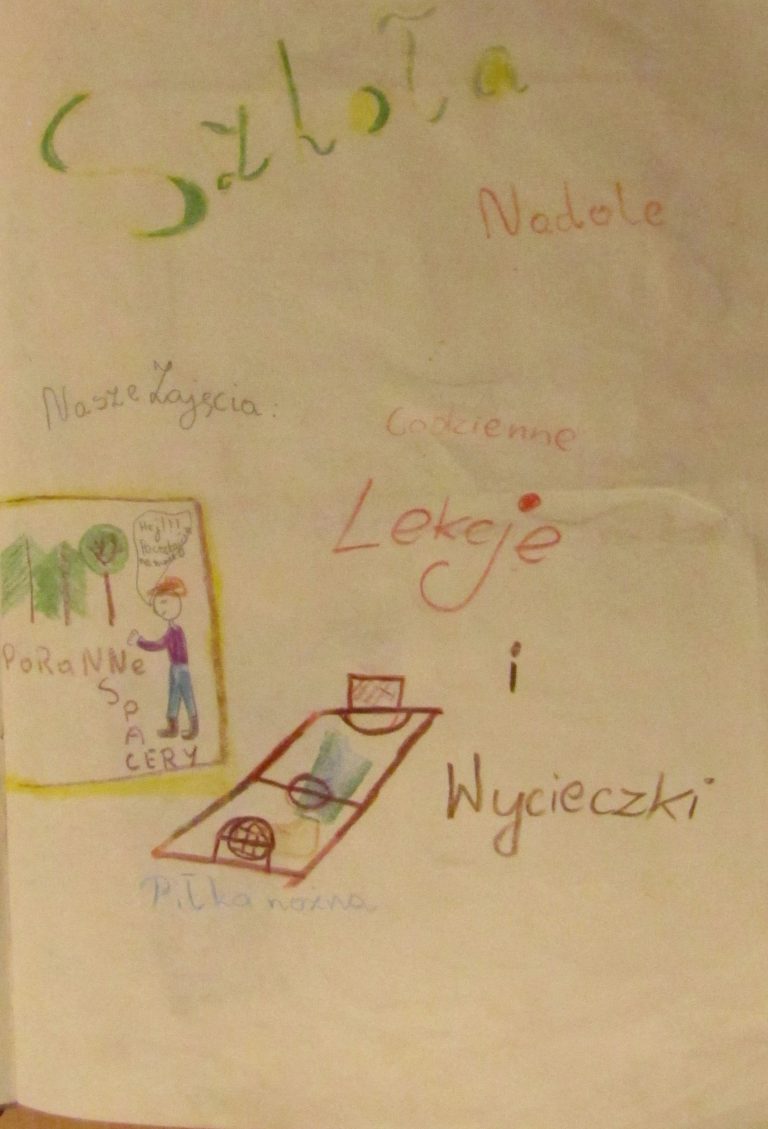 Szkoła
Nadole
Nasze Zajęcia:
Codzienne
Lekcje
i
Wycieczki
Hej!!!
Poczekaj
na mnie
PoRaNNe
S
P
A
CERY
Piłka nożna